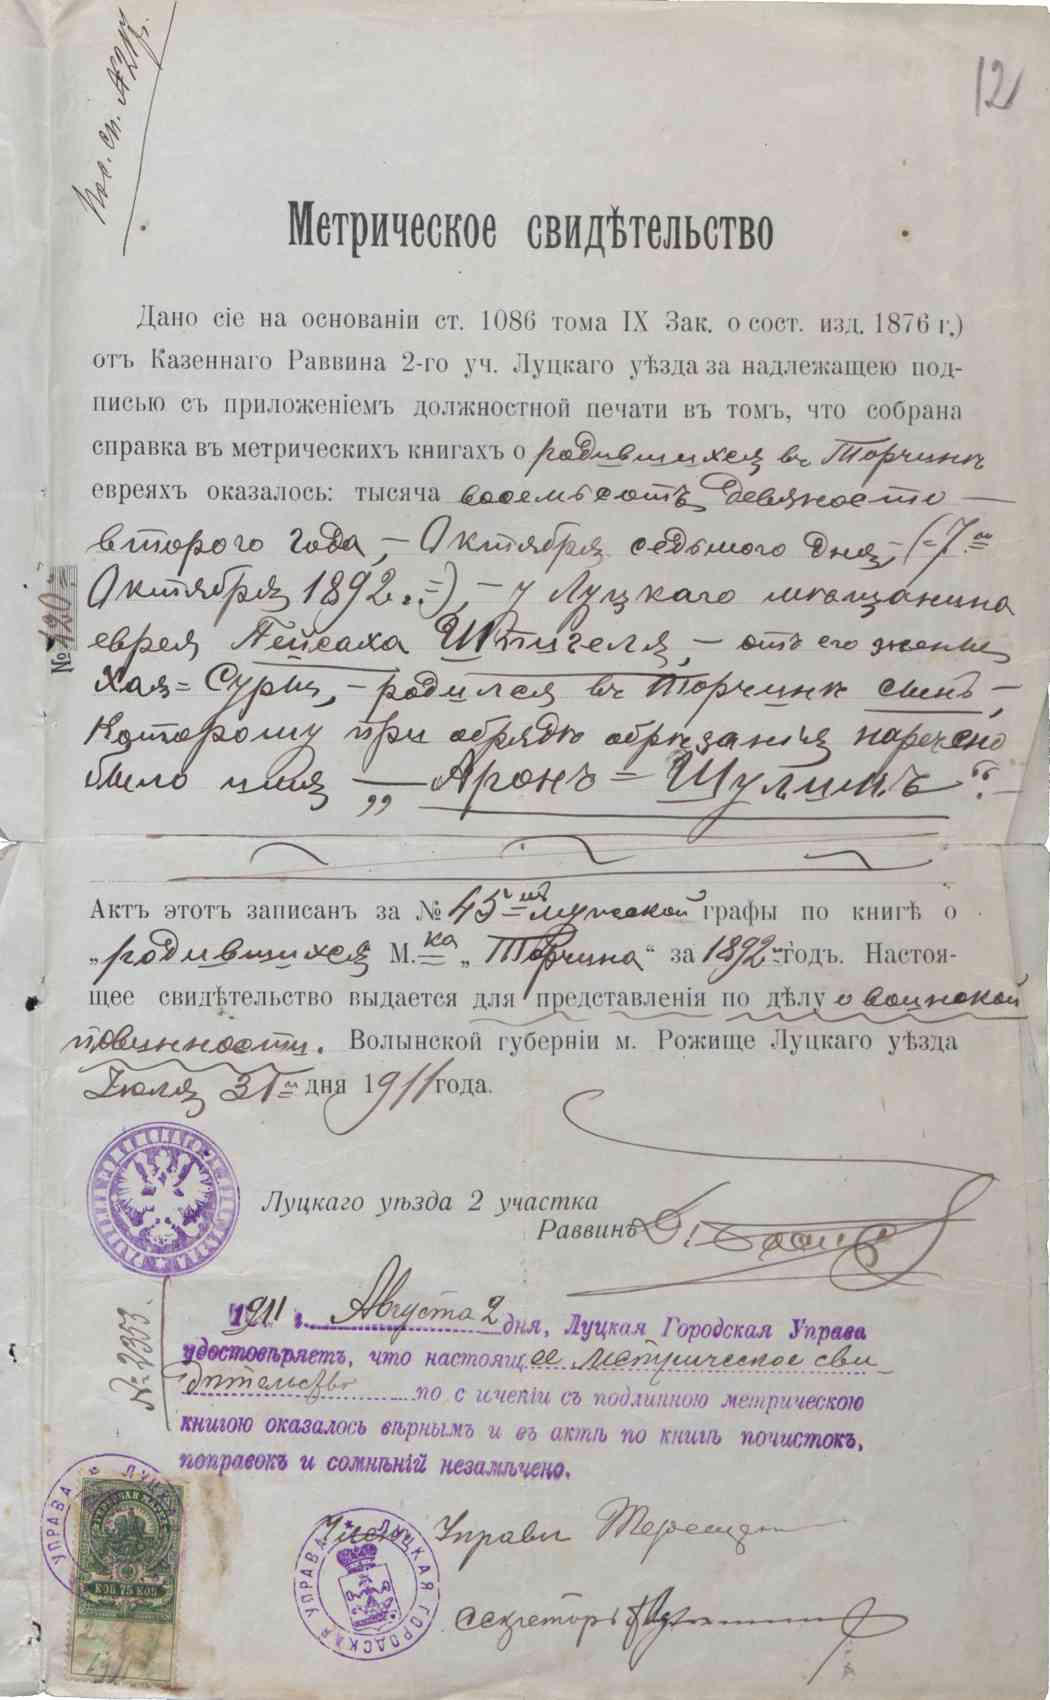 Пос. сп. № 217.
12
Метрическое свидѣтельство
Дано сіе на основаніи ст. 1086 тома IX Зак. о сост. изд. 1876 г.)
отъ Казеннаго Раввина 2-го уч. Луцкаго уѣзда за надлежащею под-
писью съ приложеніемъ должностной печати въ томъ, что собрана
справка въ метрическихъ книгахъ о родившихся въ Торчинѣ
евреяхъ оказалось: тысяча восемьсотъ девяносто —
второго года, — Октября седьмого дня, — (=7го
Октября 1892 г. =), — у Луцкаго мѣщанина
№ 420
еврея Пейсаха Штигеля, — отъ его жены
Хая=Суры, — родился въ Торчинѣ сынъ, —
которому при обрядѣ обрѣзанія наречено
было имя — „Аронъ = Шулимъ“. —
Актъ этотъ записанъ за № 45мъ мужской графы по книгѣ о
„родившихся М.ка „Торчина“ за 1892 годъ. Настоя-
щее свидѣтельство выдается для представленія по дѣлу о воинской
повинности. Волынской губерніи м. Рожище Луцкаго уѣзда
Іюля 31го дня 1911 года.
Луцкаго уѣзда 2 участка
Раввинъ
№ 2353.
1911 г. Августа 2 дня, Луцкая Городская Управа
удостовѣряетъ, что настоящее метрическое сви-
дѣтельство по сличеніи съ подлинною метрическою
книгою оказалось вѣрнымъ и въ актѣ по книгѣ почистокъ,
поправокъ и сомнѣній незамѣчено.
Членъ Управы
Секретарь
ЛУЦКАЯ ГОРОДСКАЯ УПРАВА
УПРАВА * ЛУЦК
ГЕРБОВАЯ МАРКА
КОП 75 КОП